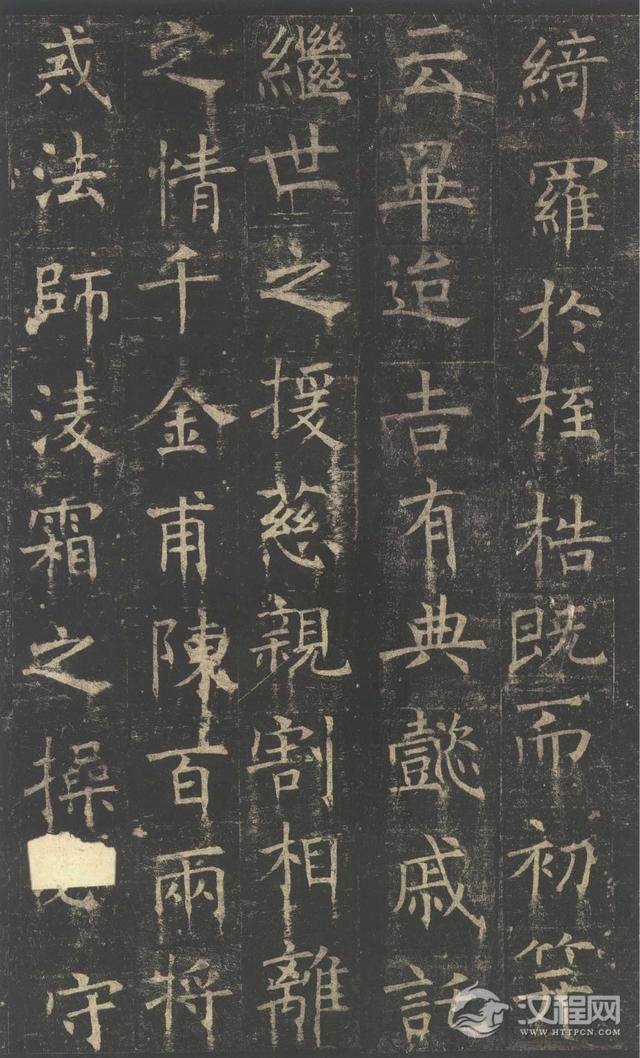 綺羅於桎梏既而初笄
云畢迨吉有典懿戚託
繼世之援慈親割相離
之情千金甫陳百兩將
戒法師凌霜之操守
汉程网
WWW.HTTPCN.COM